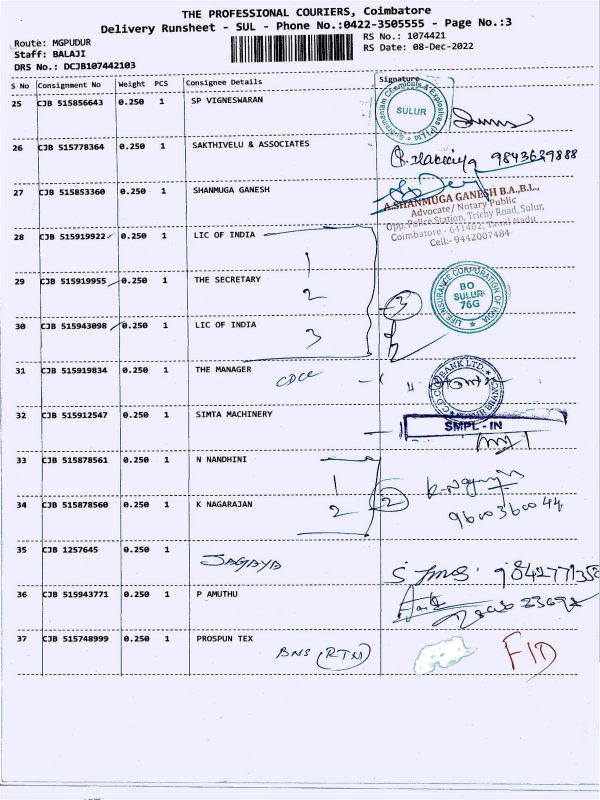 THE PROFESSIONAL COURIERS, Coimbatore
Delivery Runsheet - SUL - Phone No.:0422-3505555 - Page No.:3
Route: MGPUDUR
RS No.: 1074421
Staff: BALAJI
RS Date: 08-Dec-2022
DRS No.: DCJB107442103
S No Consignment No Weight PCS Consignee Details Signature
25 CJB 515856643 0.250 1 SP VIGNESWARAN
SULUR
26 CJB 515778364 0.250 1 SAKTHIVELU & ASSOCIATES
9843629888
27 CJB 515853360 0.250 1 SHANMUGA GANESH
A.SHANMUGA GANESH B.A.,B.L.,
Advocate/ Notary Public
Opp. Police Station, Trichy Road, Sulur,
Coimbatore - 641402, Tamil Nadu
Cell:- 9442007484
28 CJB 515919922 0.250 1 LIC OF INDIA
1
29 CJB 515919955 0.250 1 THE SECRETARY
2
3
LIFE INSURANCE CORPORATION OF INDIA
BO
SULUR
76G
30 CJB 515943098 0.250 1 LIC OF INDIA
3
31 CJB 515919834 0.250 1 THE MANAGER
32 CJB 515912547 0.250 1 SIMTA MACHINERY
SMPL - IN
33 CJB 515878561 0.250 1 N NANDHINI
1
34 CJB 515878560 0.250 1 K NAGARAJAN
2
2
9600360044
35 CJB 1257645 0.250 1
36 CJB 515943771 0.250 1 P AMUTHU
37 CJB 515748999 0.250 1 PROSPUN TEX
BNS (RTN)